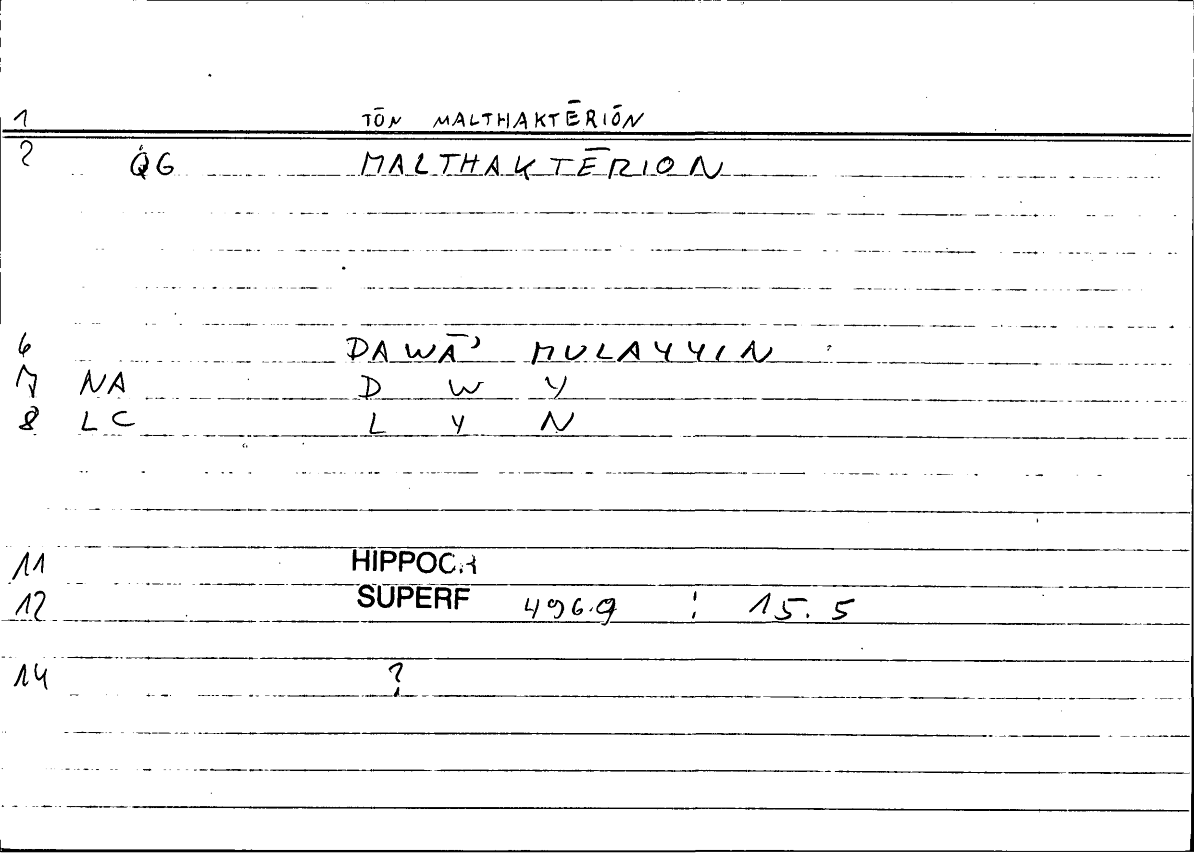 1 TŌN MALTHAKTĒRIŌN
2 QG MALTHAKTĒRION
6 DAWĀʾ MULAYYIN
7 NA D W Y
8 LC L Y N
11 HIPPOCR
12 SUPERF 496.9 ; 15.5
14 ?